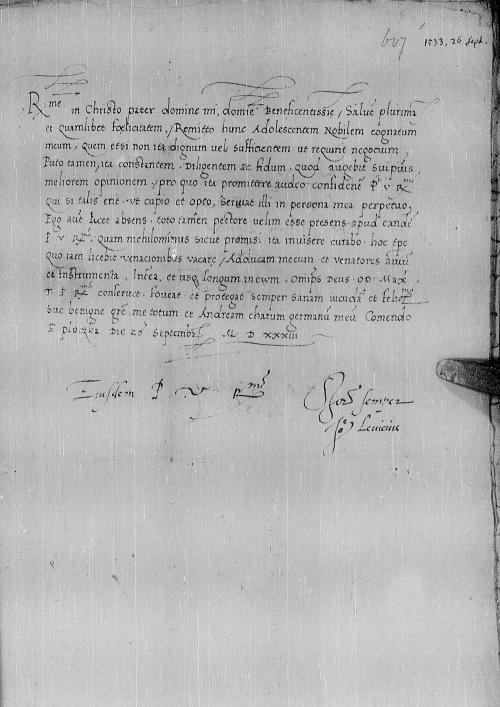 1533. 26 Sept.
R.me in Christo pater domine mi, domine Beneficentissie, Salutem plurimam
et quamlibet foelicitatem, / Remitto hunc Adolescentem Nobilem cognatum
meum, quem etsi non ita dignum vel sufficientem ut requirit negocium,
Puto tamen, ita constantem. Diligentem ac fidum, quod augebit
meliorem opinionem, / pro quo ita promittere audeo confidenter P. V. R.me
qui si talis erit. ut cupio et opto, Servat illi in persona mea perpetuo,
Ego aut licet absens. toto tamen pectore velim esse presens apud eandem
P V R.me, quam nichilominus sicut promisi. ita invisere curabo. hoc tpe
quo iam licebit venacionibus vacare, / Adducam mecum et venatores
et instrumenta, Interea, et usque longum in evum. Omips Deus. Op. Max.
P. R.me conservet. foveat. et protegat semper sanam et
Sue benigne gre. me totum et Andream charum germanum meum Comendo
E Die 26 Septembris M D XXXIII
Eiusdem P V R.me
semper